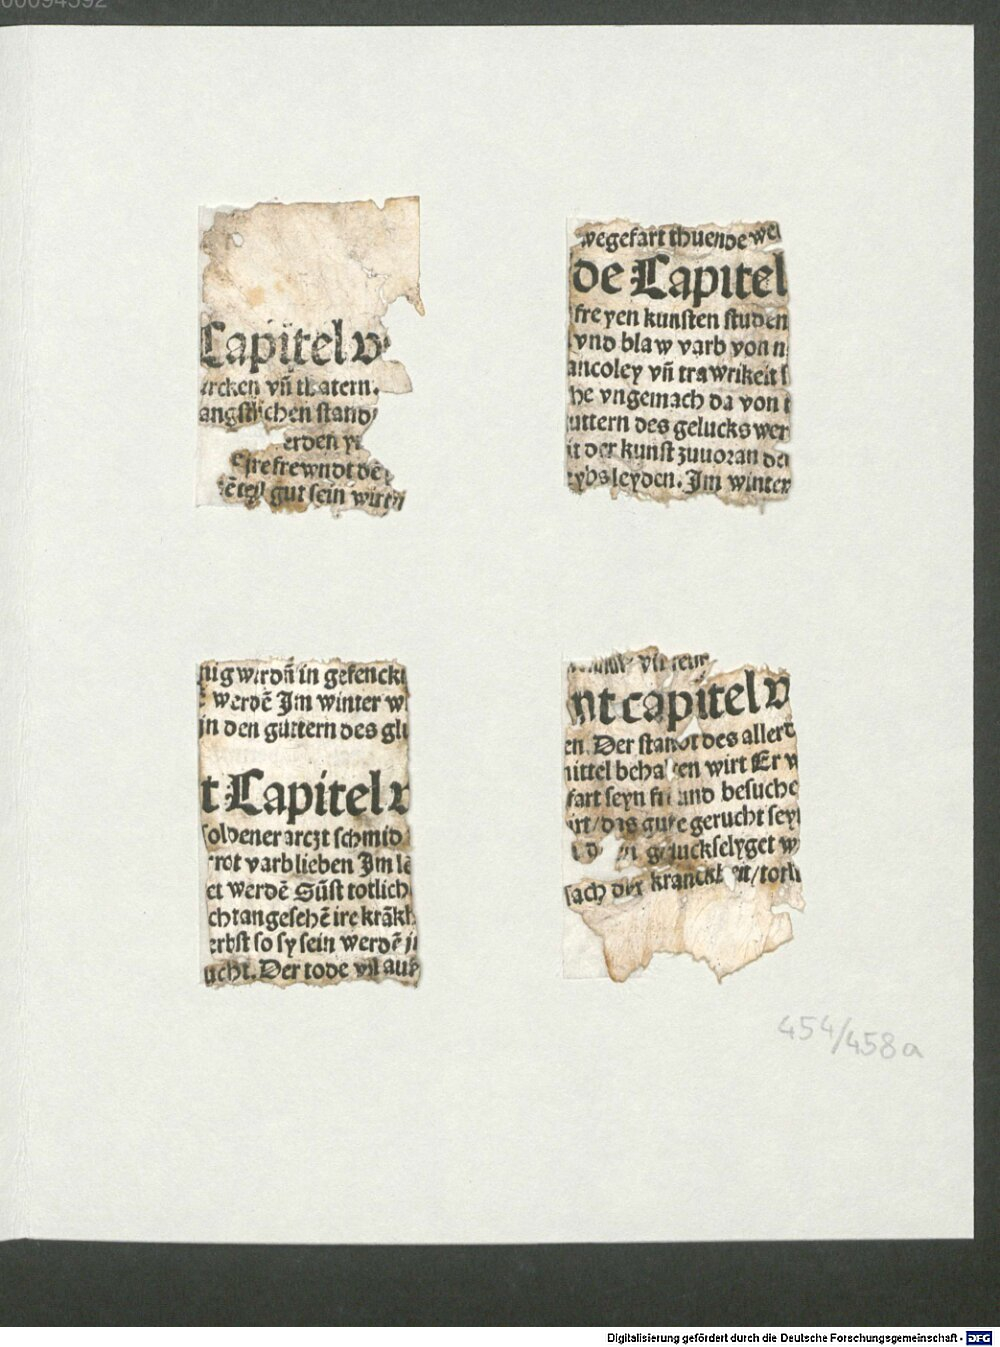 00094592
Capitel v
ircken vñ thatern.
angstlichen stand
erden
frefrewndt dẽ
gut sein wirt
wegefart thuende wei
de Capitel
freyen kunsten studen
vnd blaw varb von n
ancoley vñ trawrikeit s
he vngemach da von
uttern des gelucks wer
it der kunst zuuoran der
eybs leyden. Im winter
nig werdñ in gefenckn
werdẽ Im winter w
in den guttern des glu
t Capitel v
soldener arczt schmid
rot varb lieben Im lẽ
et werdẽ Süst totlich
cht angesehẽ ire krãkh
erbst so sy sein werdẽ in
ucht. Der tode vil auß
nt capitel v
en. Der standt des allerd
mittel behalten wirt Er w
fart seyn freund besuche
irt/das gute gerucht sey
geluckselyget w
sach der kranckheit/totli
454/458a
Digitalisierung gefördert durch die Deutsche Forschungsgemeinschaft - DFG